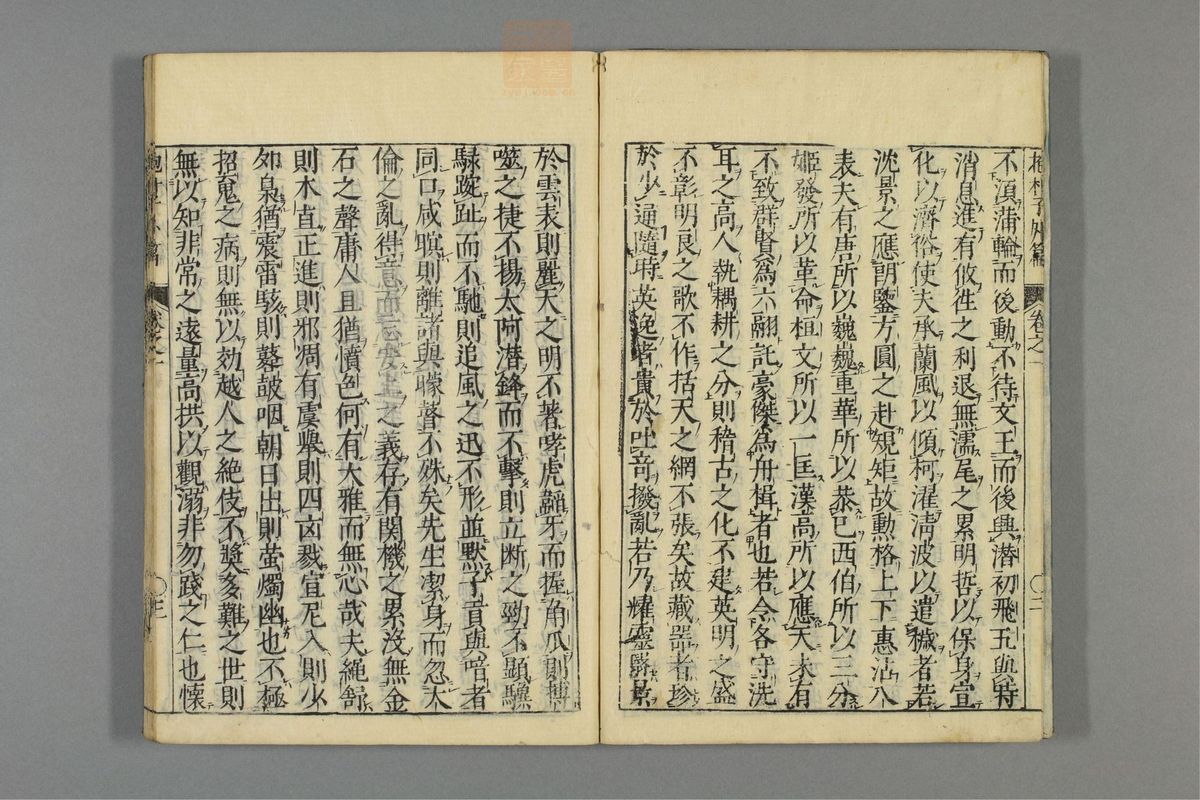 抱朴子外篇 卷之一 〇二
不須蒲輪而後動不待文王而後興潛初飛五與時
消息進有攸往之利退無濡尾之累明哲以保身宣
化以濟俗使夫承蘭風以傾柯濯清波以遣穢者若
沈景之應朗鑒方圓之赴規矩故勲格上下惠沾八
表夫有唐所以巍巍重華所以恭已西伯所以三分
姬發所以革命桓文所以一匡漢高所以應天未有
不致群賢為六翮託豪傑為舟楫者也若令各守洗
耳之高人執耦耕之分則稽古之化不建英明之盛
不彰明良之歌不作括天之網不張矣故藏器者珍
於少通隨時英逸者貴於吐奇撥亂若乃耀靈翳景
於雲表則麗天之明不著哮虎韜牙而握爪則搏
噬之捷不揚太阿潛鋒而不擊則立断之勁不顯驥
騄踠趾而不馳則追風之迅不形並默子貢與喑者
同口咸瞑則離諸與矇瞽不殊矣先生潔身而忽大
倫之亂得意而忘安上之義存有関機之累没無金
石之聲庸人且猶憤色何有大雅而無心哉夫繩舒
則木直正進則邪凋有虞舉則四凶戮宣尼入則少
卯梟猶震雷駭則鼛鼓咽朝日出則萤燭幽也不極
招䰟之病則無以効越人之絶伎不獎多難之世則
無以知非常之遠量高拱以觀溺非勿踐之仁也懐
抱朴子外篇 卷之一 〇三